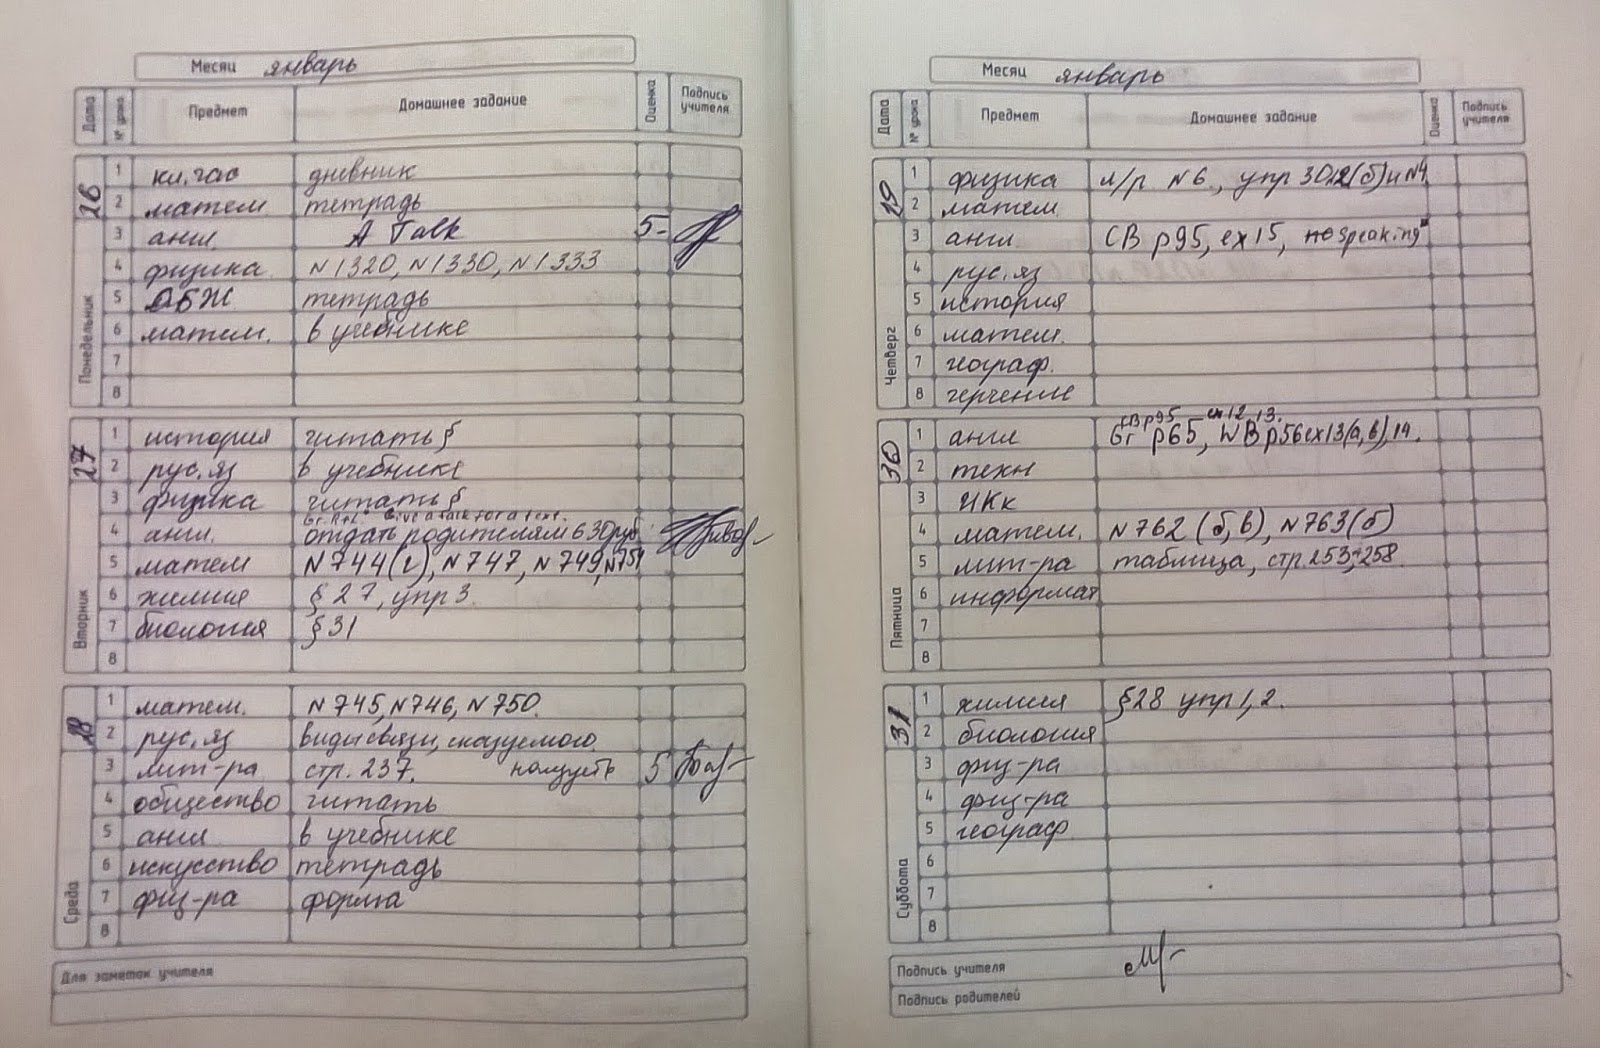 Месяц январь
Дата № урока Предмет Домашнее задание Оценка Подпись учителя
26 Понедельник
1 кл. час дневник
2 матем тетрадь
3 англ. A Talk 5-
4 физика N1320, N1330, N1333
5 ОБЖ тетрадь
6 матем. в учебнике
7
8
27 Вторник
1 история читать §
2 рус. яз в учебнике
3 физика читать §
Give a talk for a text.
4 англ. отдать родителям 630 руб
5 матем N744(г), N747, N749, N751
6 химия § 27, упр 3.
7 биология § 31
8
28 Среда
1 матем. N745, N746, N750.
2 рус. яз виды связи, сказуемого.
3 лит-ра стр. 237. наизусть 5
4 общество читать
5 англ в учебнике
6 искусство тетрадь
7 физ-ра форма
8
Для заметок учителя
Месяц январь
Дата № урока Предмет Домашнее задание Оценка Подпись учителя
29 Четверг
1 физика л/р N6, упр 30 (б) и N4
2 матем
3 англ. CB p95, ex15, speaking
4 рус. яз
5 история
6 матем.
7 географ.
8 черчение
30 Пятница
CB p95 ex 12, 13.
1 англ Gr p65, WB p56 ex13(a,b), 14.
2 техн
3 ИКк
4 матем. N762 (б, в), N763(б)
5 лит-ра таблица, стр. 253, 258.
6 информат
7
8
31 Суббота
1 химия §28 упр 1, 2.
2 биология
3 физ-ра
4 физ-ра
5 географ
6
7
8
Подпись учителя
Подпись родителей